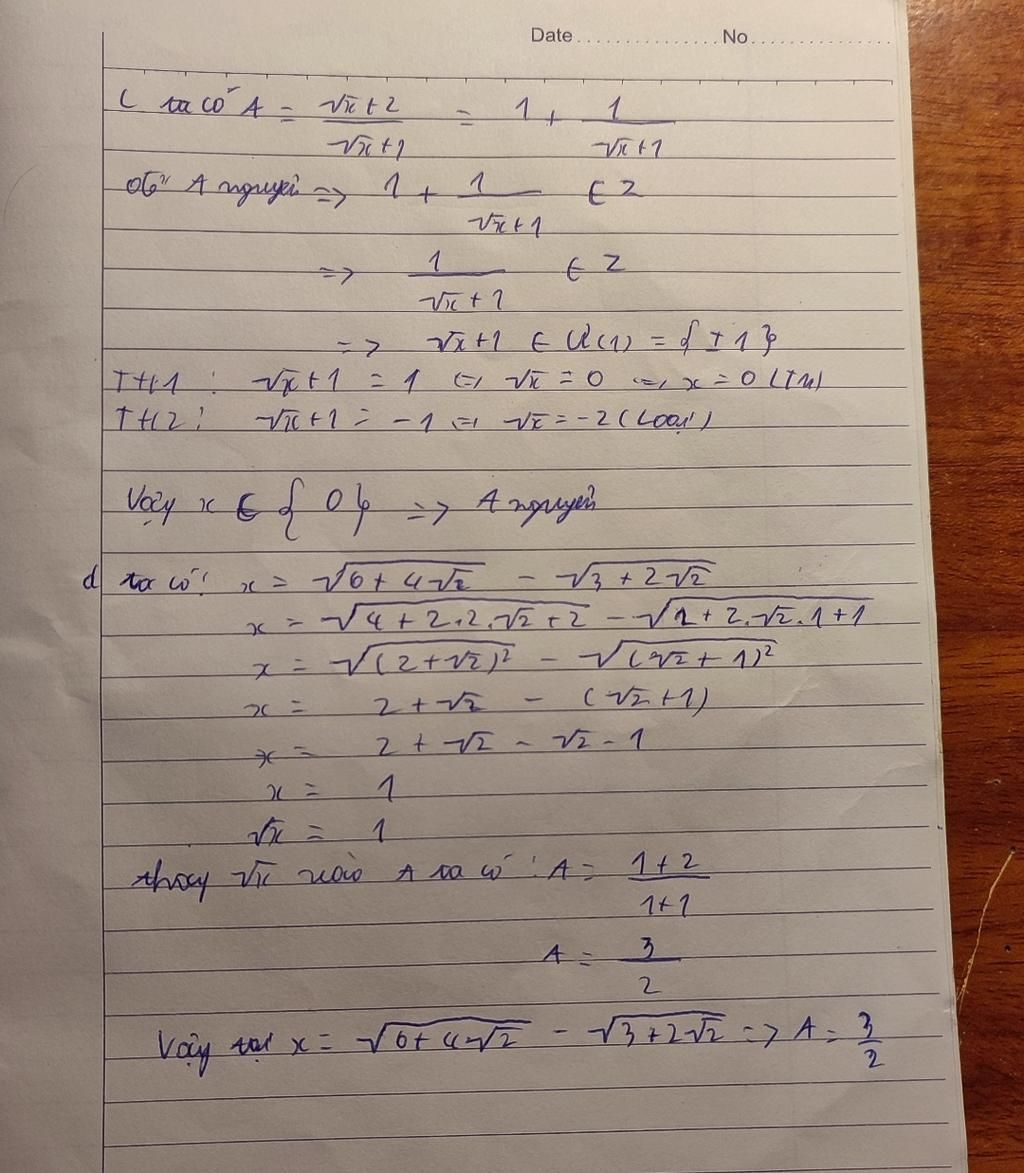 Date ............... No ...............
c ta có A = (√x + 2)/(√x + 1) = 1 + 1/(√x + 1)
để A nguyên => 1 + 1/(√x + 1) ∈ Z
=> 1/(√x + 1) ∈ Z
=> √x + 1 ∈ Ư(1) = {±1}
TH1: √x + 1 = 1 <=> √x = 0 <=> x = 0 (TM)
TH2: √x + 1 = -1 <=> √x = -2 (Loại)
Vậy x ∈ {0} => A nguyên
d ta có: x = √(6 + 4√2) - √(3 + 2√2)
x = √(4 + 2.2.√2 + 2) - √(1 + 2.√2.1 + 1)
x = √((2 + √2)²) - √((√2 + 1)²)
x = 2 + √2 - (√2 + 1)
x = 2 + √2 - √2 - 1
x = 1
√x = 1
thay √x vào A ta có: A = (1 + 2)/(1 + 1)
A = 3/2
Vậy tại x = √(6 + 4√2) - √(3 + 2√2) => A = 3/2